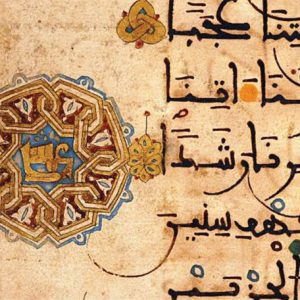 ـتنا عجبا
ـنا اتنا
ـمرنا رشدا
ـهف سنين
الحزبين